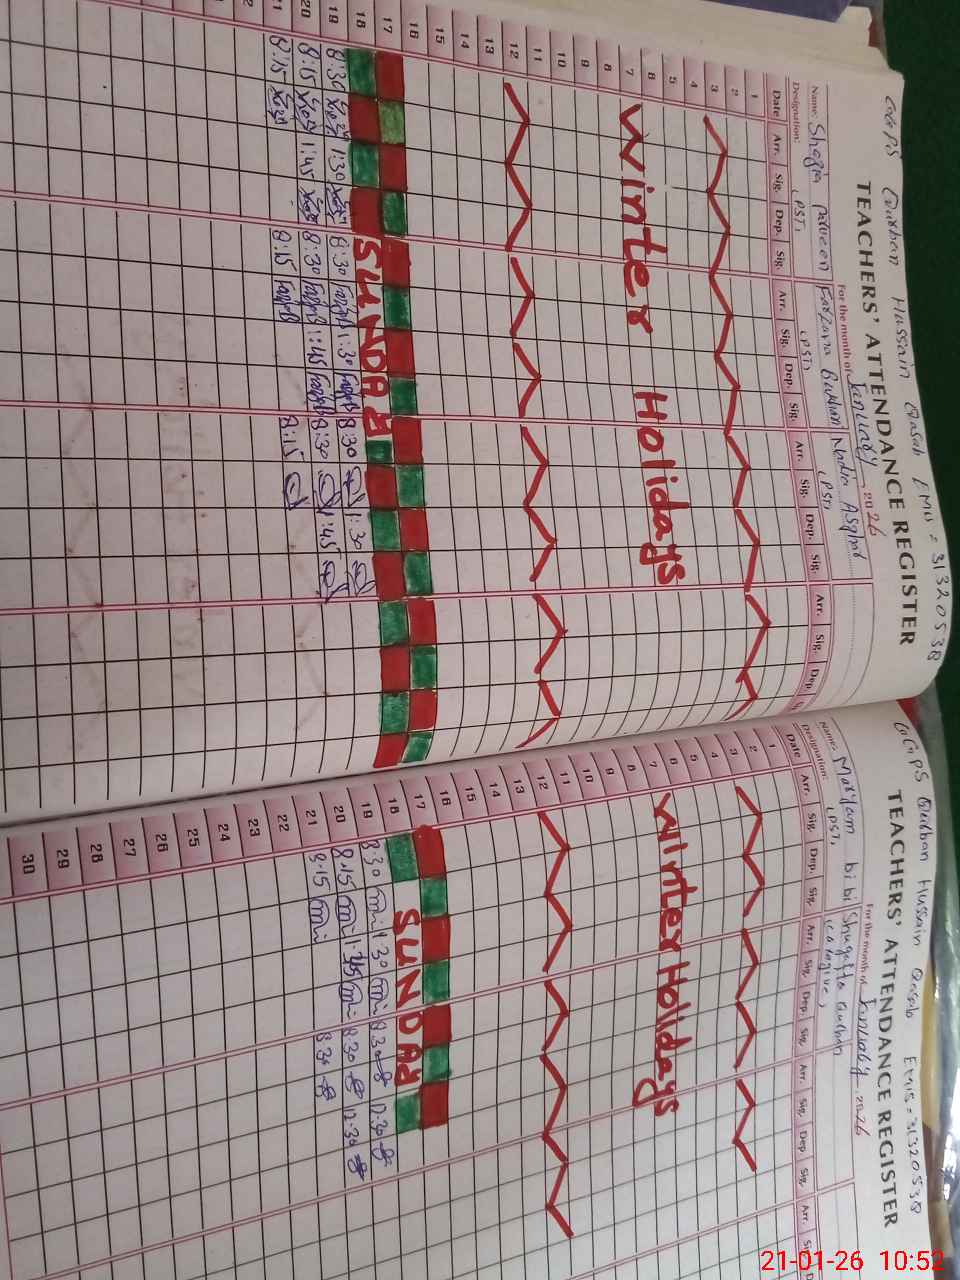 GGPS Qurban Hussain Qasab EMIS = 31320538
TEACHERS' ATTENDANCE REGISTER
For the month of January 2026
Name: Shazia Parveen Farzana Bukhari Nadia Asghar
Designation: (PST) (PST) (PST)
Date Arr. Sig. Dep. Sig. Arr. Sig. Dep. Sig. Arr. Sig. Dep. Sig. Arr. Sig. Dep.
1
2
3
4
5
6
7
8
9
10
11
12
13
14
15
16
17
18
19
20
Winter Holidays
SUNDAY
8:30 1:30 8:30 1:30 8:30 1:30
8:15 1:45 8:30 1:45 8:30 1:45
8:15 8:15 8:15
GGPS Qurban Hussain Qasab EMIS = 31320538
TEACHERS' ATTENDANCE REGISTER
For the month of January 2026
Name: Maryam bibi Shugufta
Designation: (PST) (caregiver)
Date Arr. Sig. Dep. Sig. Arr. Sig. Dep. Sig. Arr. Sig. Dep. Sig. Arr.
1
2
3
4
5
6
7
8
9
10
11
12
13
14
15
16
17
18
19
20
21
22
23
24
25
26
27
28
29
30
Winter Holidays
SUNDAY
8:30 1:30 8:30 12:30
8:15 1:45 8:30 12:30
8:15 8:30
21-01-26 10:52